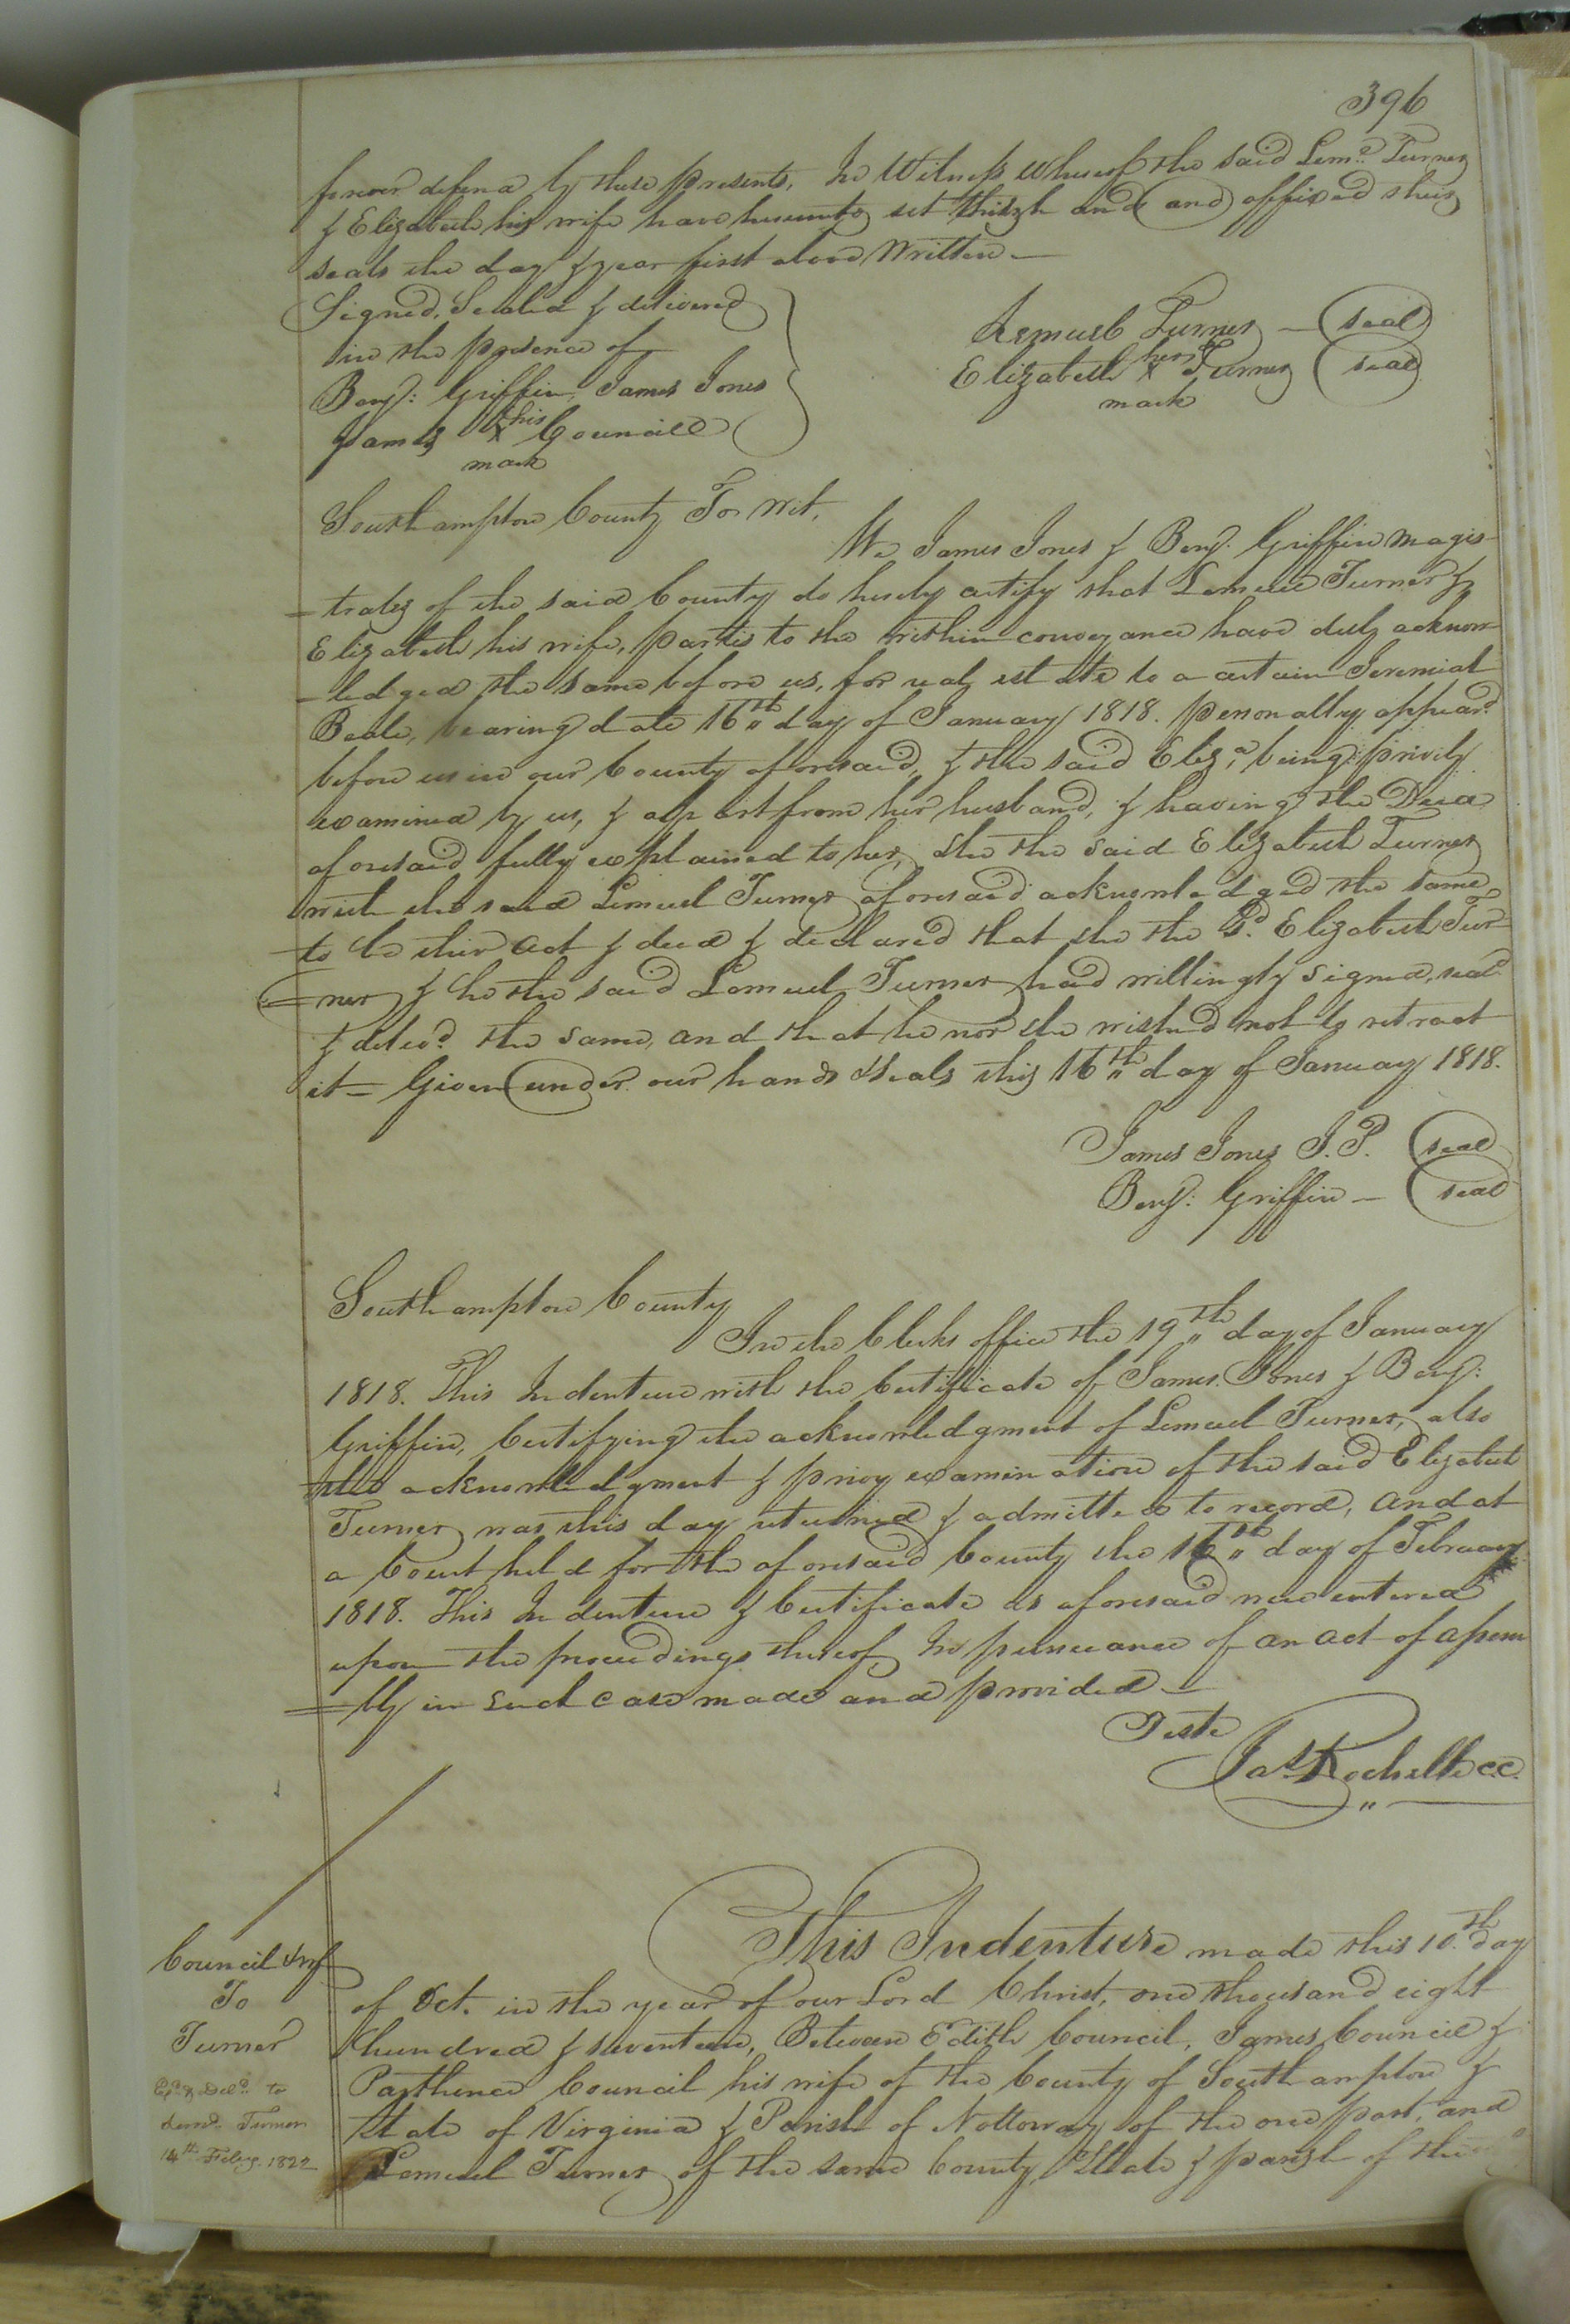 396
forever defend by these presents, In Witness whereof the said Leml. Turner
& Elizabeth his wife have hereunto set their hand and affixed their
seals the day & year first above Written —
Signed, Sealed & delivered
in the presence of
Benj: Griffin, James Jones
James his X mark Council
Lemuel Turner — seal
Elizabeth her X mark Turner seal
Southampton County To Wit,
We James Jones & Benj. Griffin Magis-
=trates of the said County do hereby certify that Lemuel Turner &
Elizabeth his wife, parties to the within conveyance have duly acknow-
-ledged the same before us, for real estate to a certain Jeremiah
Beale, bearing date 16th day of January 1818. personally appeard
before us in our County aforesaid, & the said Eliza. being privily
examined by us, & apart from her husband, & having the Deed
aforesaid fully explained to her, she the said Elizabeth Turner
with the said Lemuel Turner aforesaid acknowledged the same,
to be their act & deed & declared that she the Sd. Elizabeth Tur-
=ner & he the said Lemuel Turner had willingly signed, seald
& delivd. the same, and that he nor she wished not to retract
it = Given under our hands & seals this 16th day of January 1818.
James Jones J.P. seal
Benj: Griffin — seal
Southampton County
In the Clerks office the 19th day of January
1818. This Indenture with the Certificate of James Jones & Benj:
Griffin, Certifying the acknowledgment of Lemuel Turner, also
the acknowledgment & privy examination of the said Elizabeth
Turner was this day returned & admitted to record, and at
a Court held for the aforesaid County the 16th day of February
1818. This Indenture & Certificate as aforesaid were entered
upon the proceedings thereof, In pursuance of an act of assem
=bly in such case made and provided —
Teste
Jas. Rochelle C.C.
Council & wf
To
Turner
Exd. & Deld. to
Leml. Turner
14th Feby. 1822
This Indenture made this 10th day
of Oct. in the year of our Lord Christ, one thousand eight
hundred & seventeen, Between Edith Council, James Council &
Parthenea Council his wife of the County of Southampton &
State of Virginia & Parish of Nottoway of the one part, and
Lemuel Turner of the same County, State & parish of the